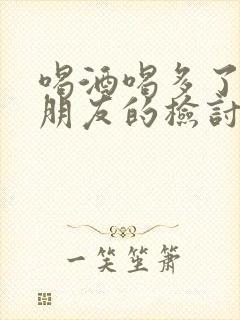 喝酒喝多了
朋友的檢討
一笑笙簫